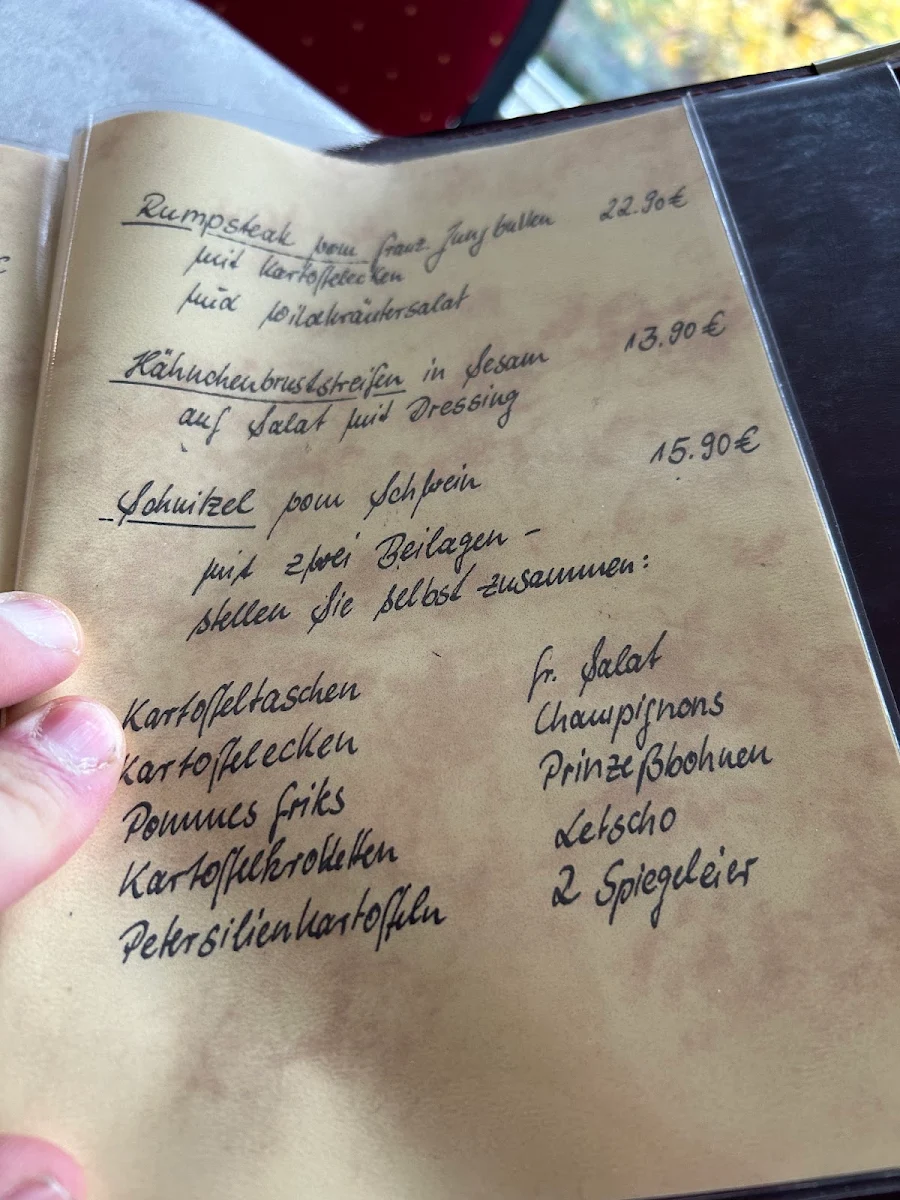 Rumpsteak vom franz. Jungbullen 22.90€
mit Kartoffelecken
und Wildkräutersalat
Hähnchenbruststreifen in Sesam 13.90€
auf Salat mit Dressing
Schnitzel vom Schwein 15.90€
mit zwei Beilagen -
stellen Sie selbst zusammen:
Kartoffeltaschen
Kartoffelecken
Pommes friks
Kartoffelkroketten
Petersilienkartoffeln
fr. Salat
Champignons
Prinzeßbohnen
Letscho
2 Spiegeleier